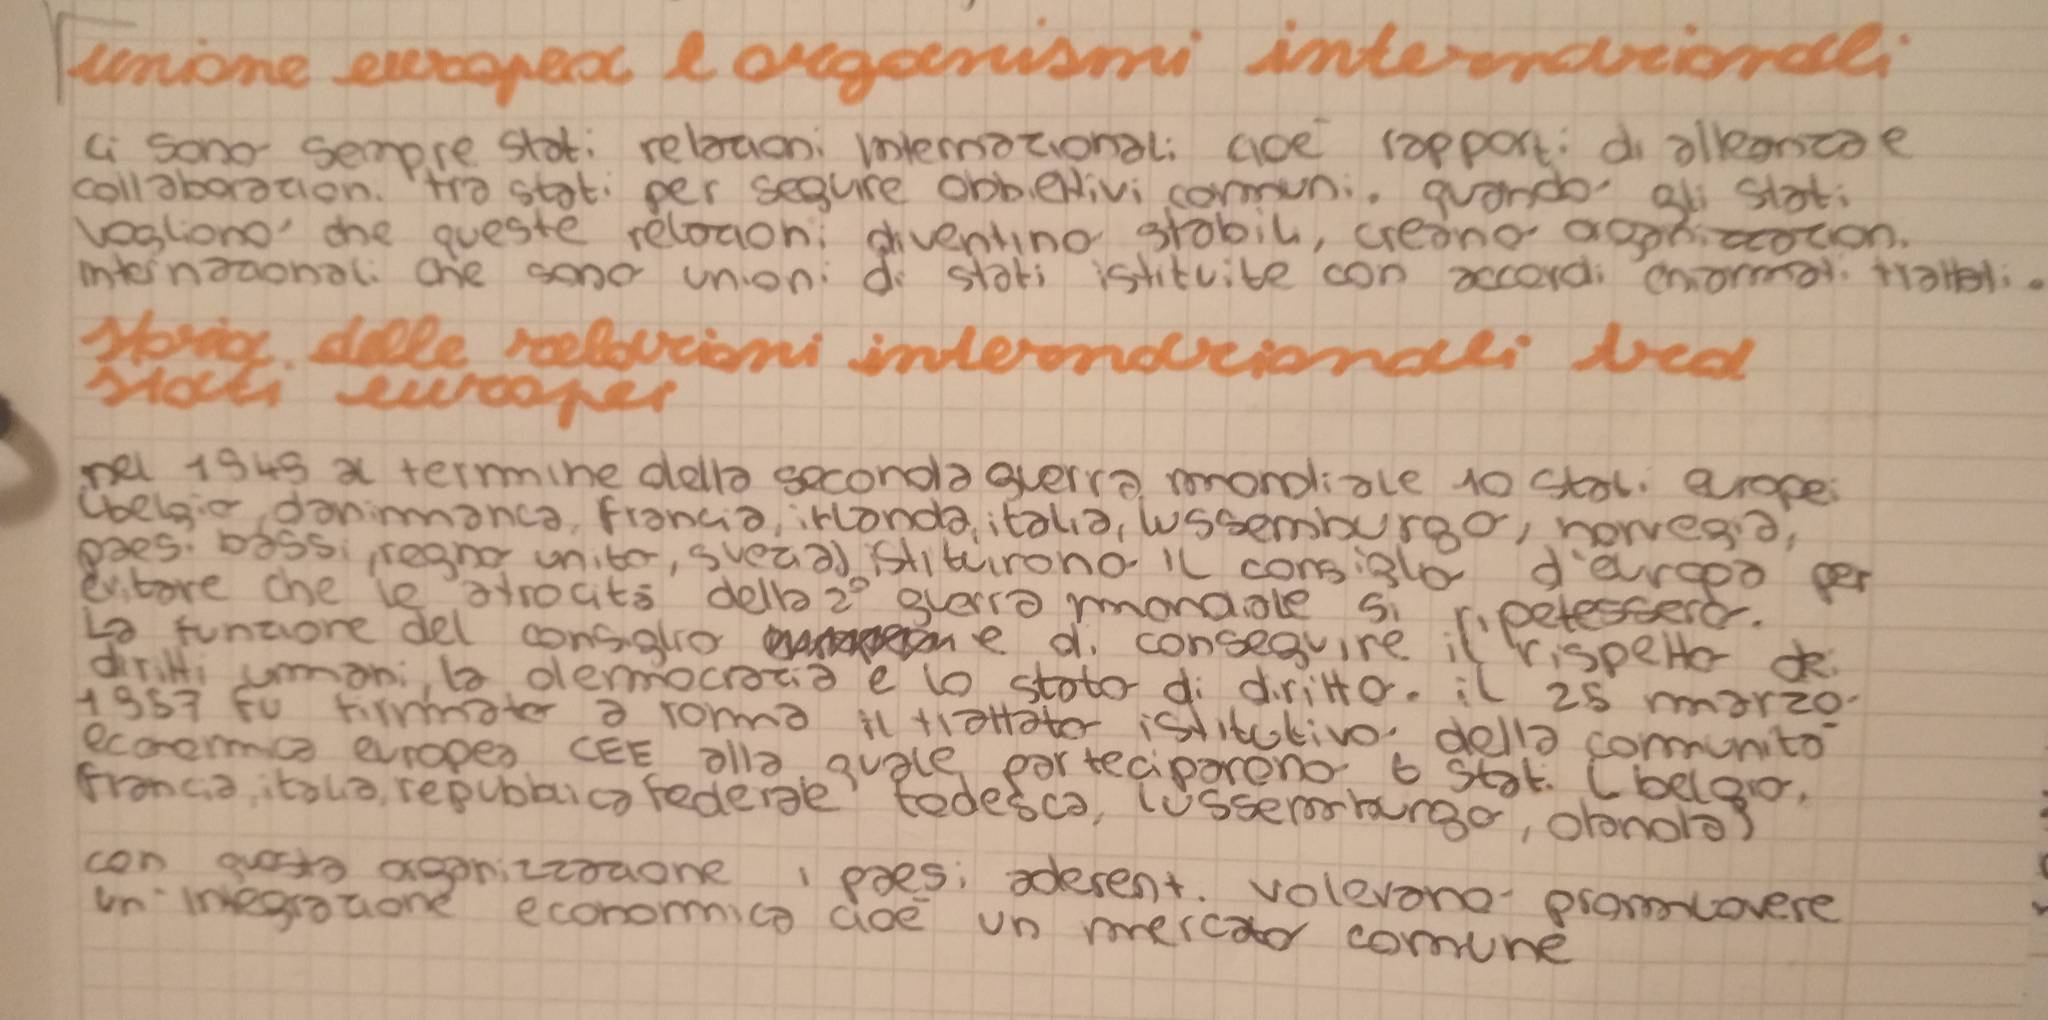 unione europea e organismi internazionali
ci sono sempre stati relazioni internazionali cioè rapporti di alleanza e
collaborazioni tra stati per seguire obbiettivi comuni. quando gli stati
vogliono che queste relazioni diventino stabili, creano organizzazioni
internazionali che sono unioni di stati istituite con accordi chiamati trattati.
storia delle relazioni internazionali tra
stati europei
nel 1949 al termine della seconda guerra mondiale 10 stati europei
(belgio, danimmanca, francia, irlanda, italia, lussemburgo, norvegia,
paesi bassi, regno unito, svezia) istituirono il consiglio d'europa per
evitare che le atrocità della 2° guerra mondiale si ripetessero.
La funzione del consiglio e di conseguire il rispetto dei
diritti umani, la democrazia e lo stato di diritto. il 25 marzo
1957 fu firmato a roma il trattato istitutivo della comunità
economica europea CEE alla quale parteciparono 6 stati (belgio,
francia, italia, repubblica federale tedesca, lussemburgo, olanda)
con questa organizzazione i paesi aderenti volevano promuovere
un'integrazione economica cioè un mercato comune